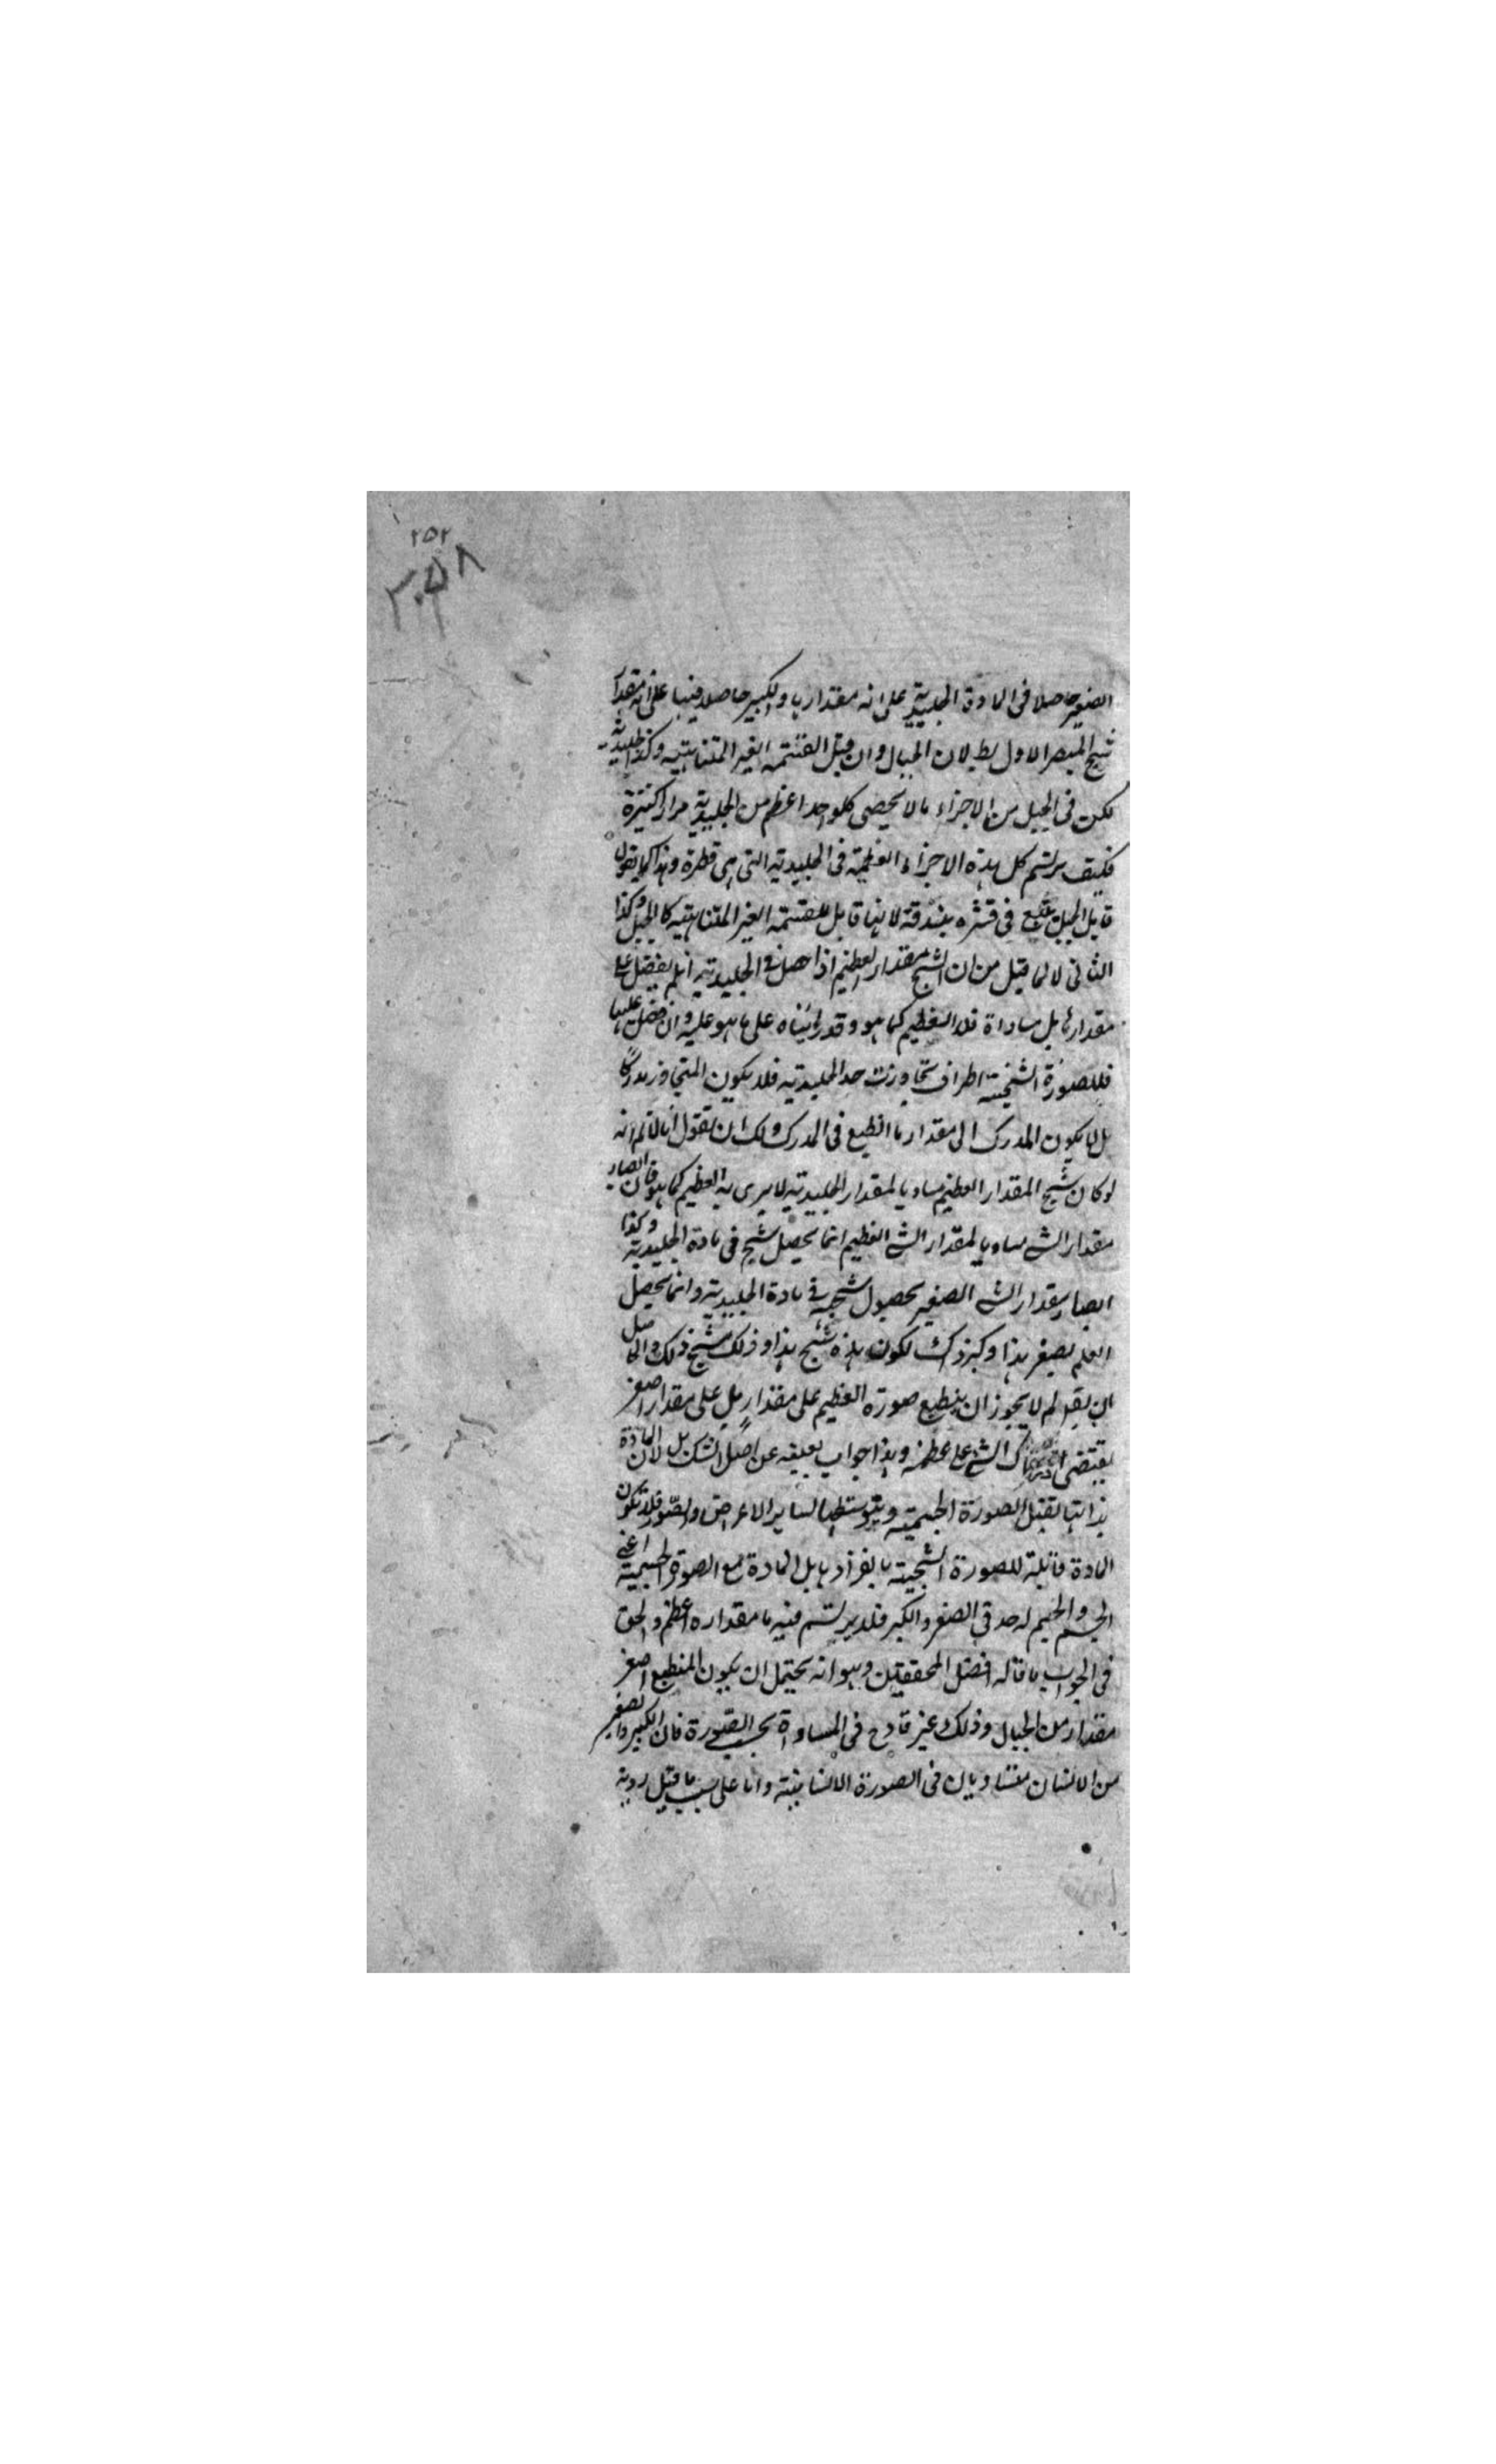 ٢٥٢
٣٥٨
الصغير حاصلا فى المادة الجليدية على انه مقدار ها والكبير حاصلا فيها على انه مقدار
شبح المبصر الاول بط لان الجبال وان قبل القسمة الغير المتناهية وكذا الجليدية
لكن فى الجبل من الاجزاء مالا يحصى كلواحد اعظم من الجليدية مرارا كثيرة
فكيف يرتسم كل هذه الاجزاء العظيمة فى الجليدية التى هى قطرة وهذا كما يقول
قايل الجبل يقع فى قشره بندقة لانها قابل للقسمة الغير المتناهية كالجبل وكذا
الثانى لا لما قيل من ان الشبح مقدار العظيم اذا حصل فى الجليدية ان لم يفضل على
مقدارها بل ساواة فلا العظيم كما هو وقد رايناه على ما هو عليه وان فضل عليها
فللصورة الشبحية اطراف تجاوزت حد الجليدية فلا يكون المتجاوز مدركا
بل انما يكون المدرك الى مقدار ما انطبع فى المدرك ولك ان تقول انا لانم انه
لو كان شبح المقدار العظيم مساويا لمقدار الجليدية لا يرى به العظيم كما هو فان ابصار
مقدار الشى مساويا لمقدار الشى العظيم انما يحصل شبح فى مادة الجليدية وكذا
ابصار مقدار الشى الصغير بحصول شبحه فى مادة الجليدية وانما يحصل
العلم بصغر هذا وكبر ذاك لكون هذه شبح هذا وذلك شبح ذلك والحاصل
ان يقول لم لا يجوز ان ينطبع صورة العظيم على مقدار بل على مقدار اصغر
يقتضى ادراك الشبح على عظمه وهذا جواب بعينه عن اصل الشك بل لان المادة
بذاتها تقبل الصورة الجسمية وبتوسطها لساير الاعراض والصور فلا تكون
المادة قابلة للصورة الشبحية بانفرادها بل المادة مع الصورة الجسمية اعنى
الجسم والجسم له حد فى الصغر والكبر فلا يرتسم فيه ما مقداره اعظم والحق
فى الجواب ما قاله افضل المحققين وهو انه يحتمل ان يكون المنطبع اصغر
مقدار من الجبال وذلك غير قادح فى المساواة بحسب الصورة فان الكبير والصغير
من الانسان متساويان فى الصورة الانسانية واما على ما قيل روية